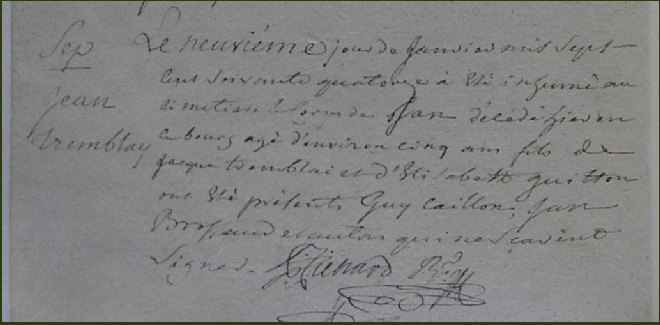 Sep
jean
tremblay
Le neuviéme jour de Janvier mil sept
cent soixante quatorze à été inhumé au
cimetiere le corps de Jean décédé hier en
ce bourg agé d'environ cinq ans fils de
jacque tremblai et d'Elisabeth guitton
ont été présents Guy Caillon, Jean
Brossaud et autres qui ne scavent
Signer.